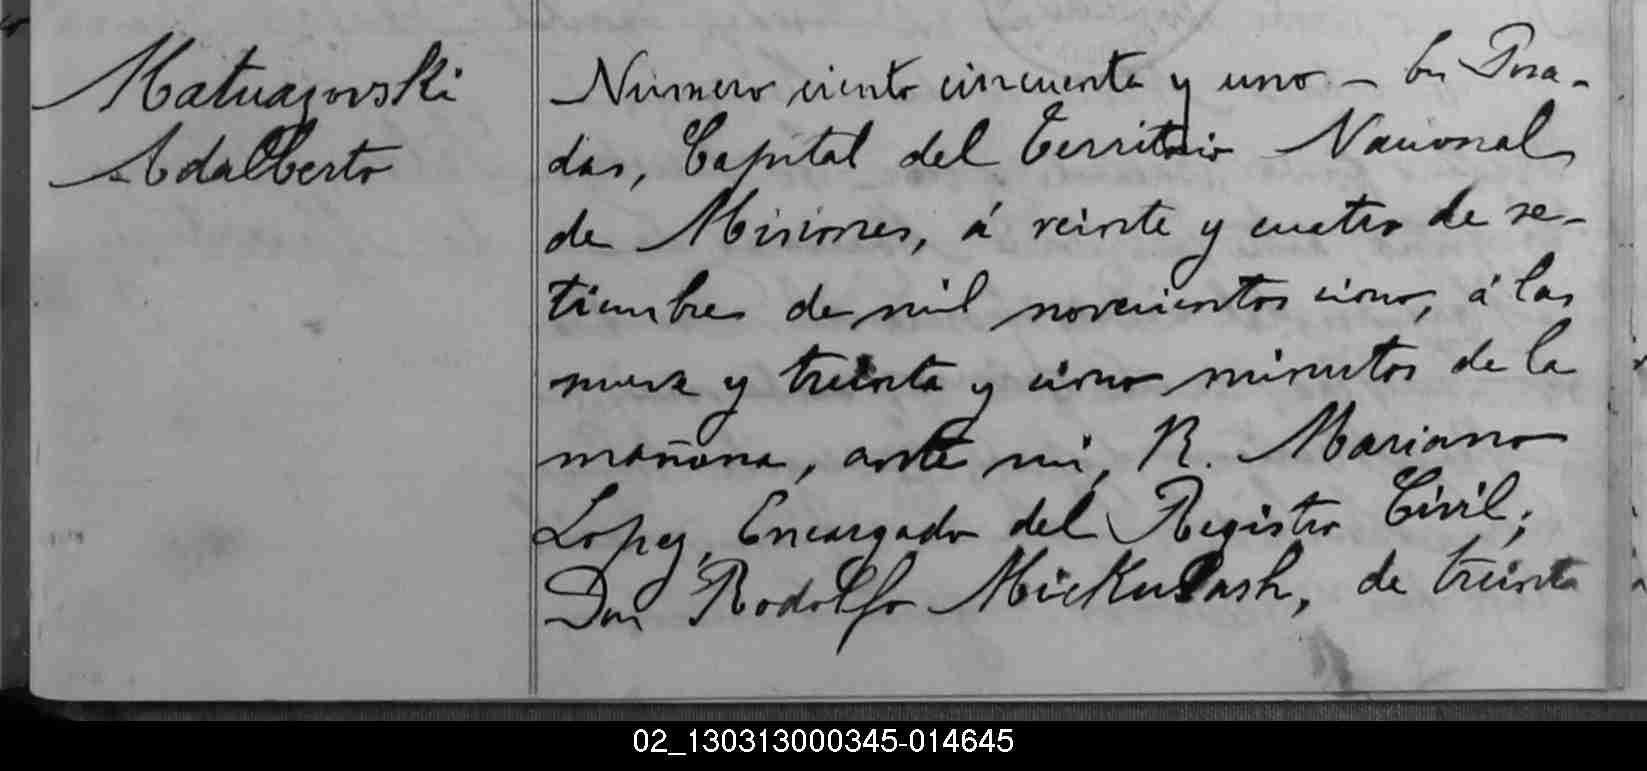 Matuazovski
Adalberto
Número ciento cincuenta y uno - En Posa-
das, Capital del Territorio Nacional
de Misiones, á veinte y cuatro de se-
tiembre de mil novecientos cinco, á las
nueve y treinta y cinco minutos de la
mañana, ante mi, R. Mariano
Lopez, Encargado del Registro Civil;
Don Rodolfo Mickulash, de treinta
02_130313000345-014645